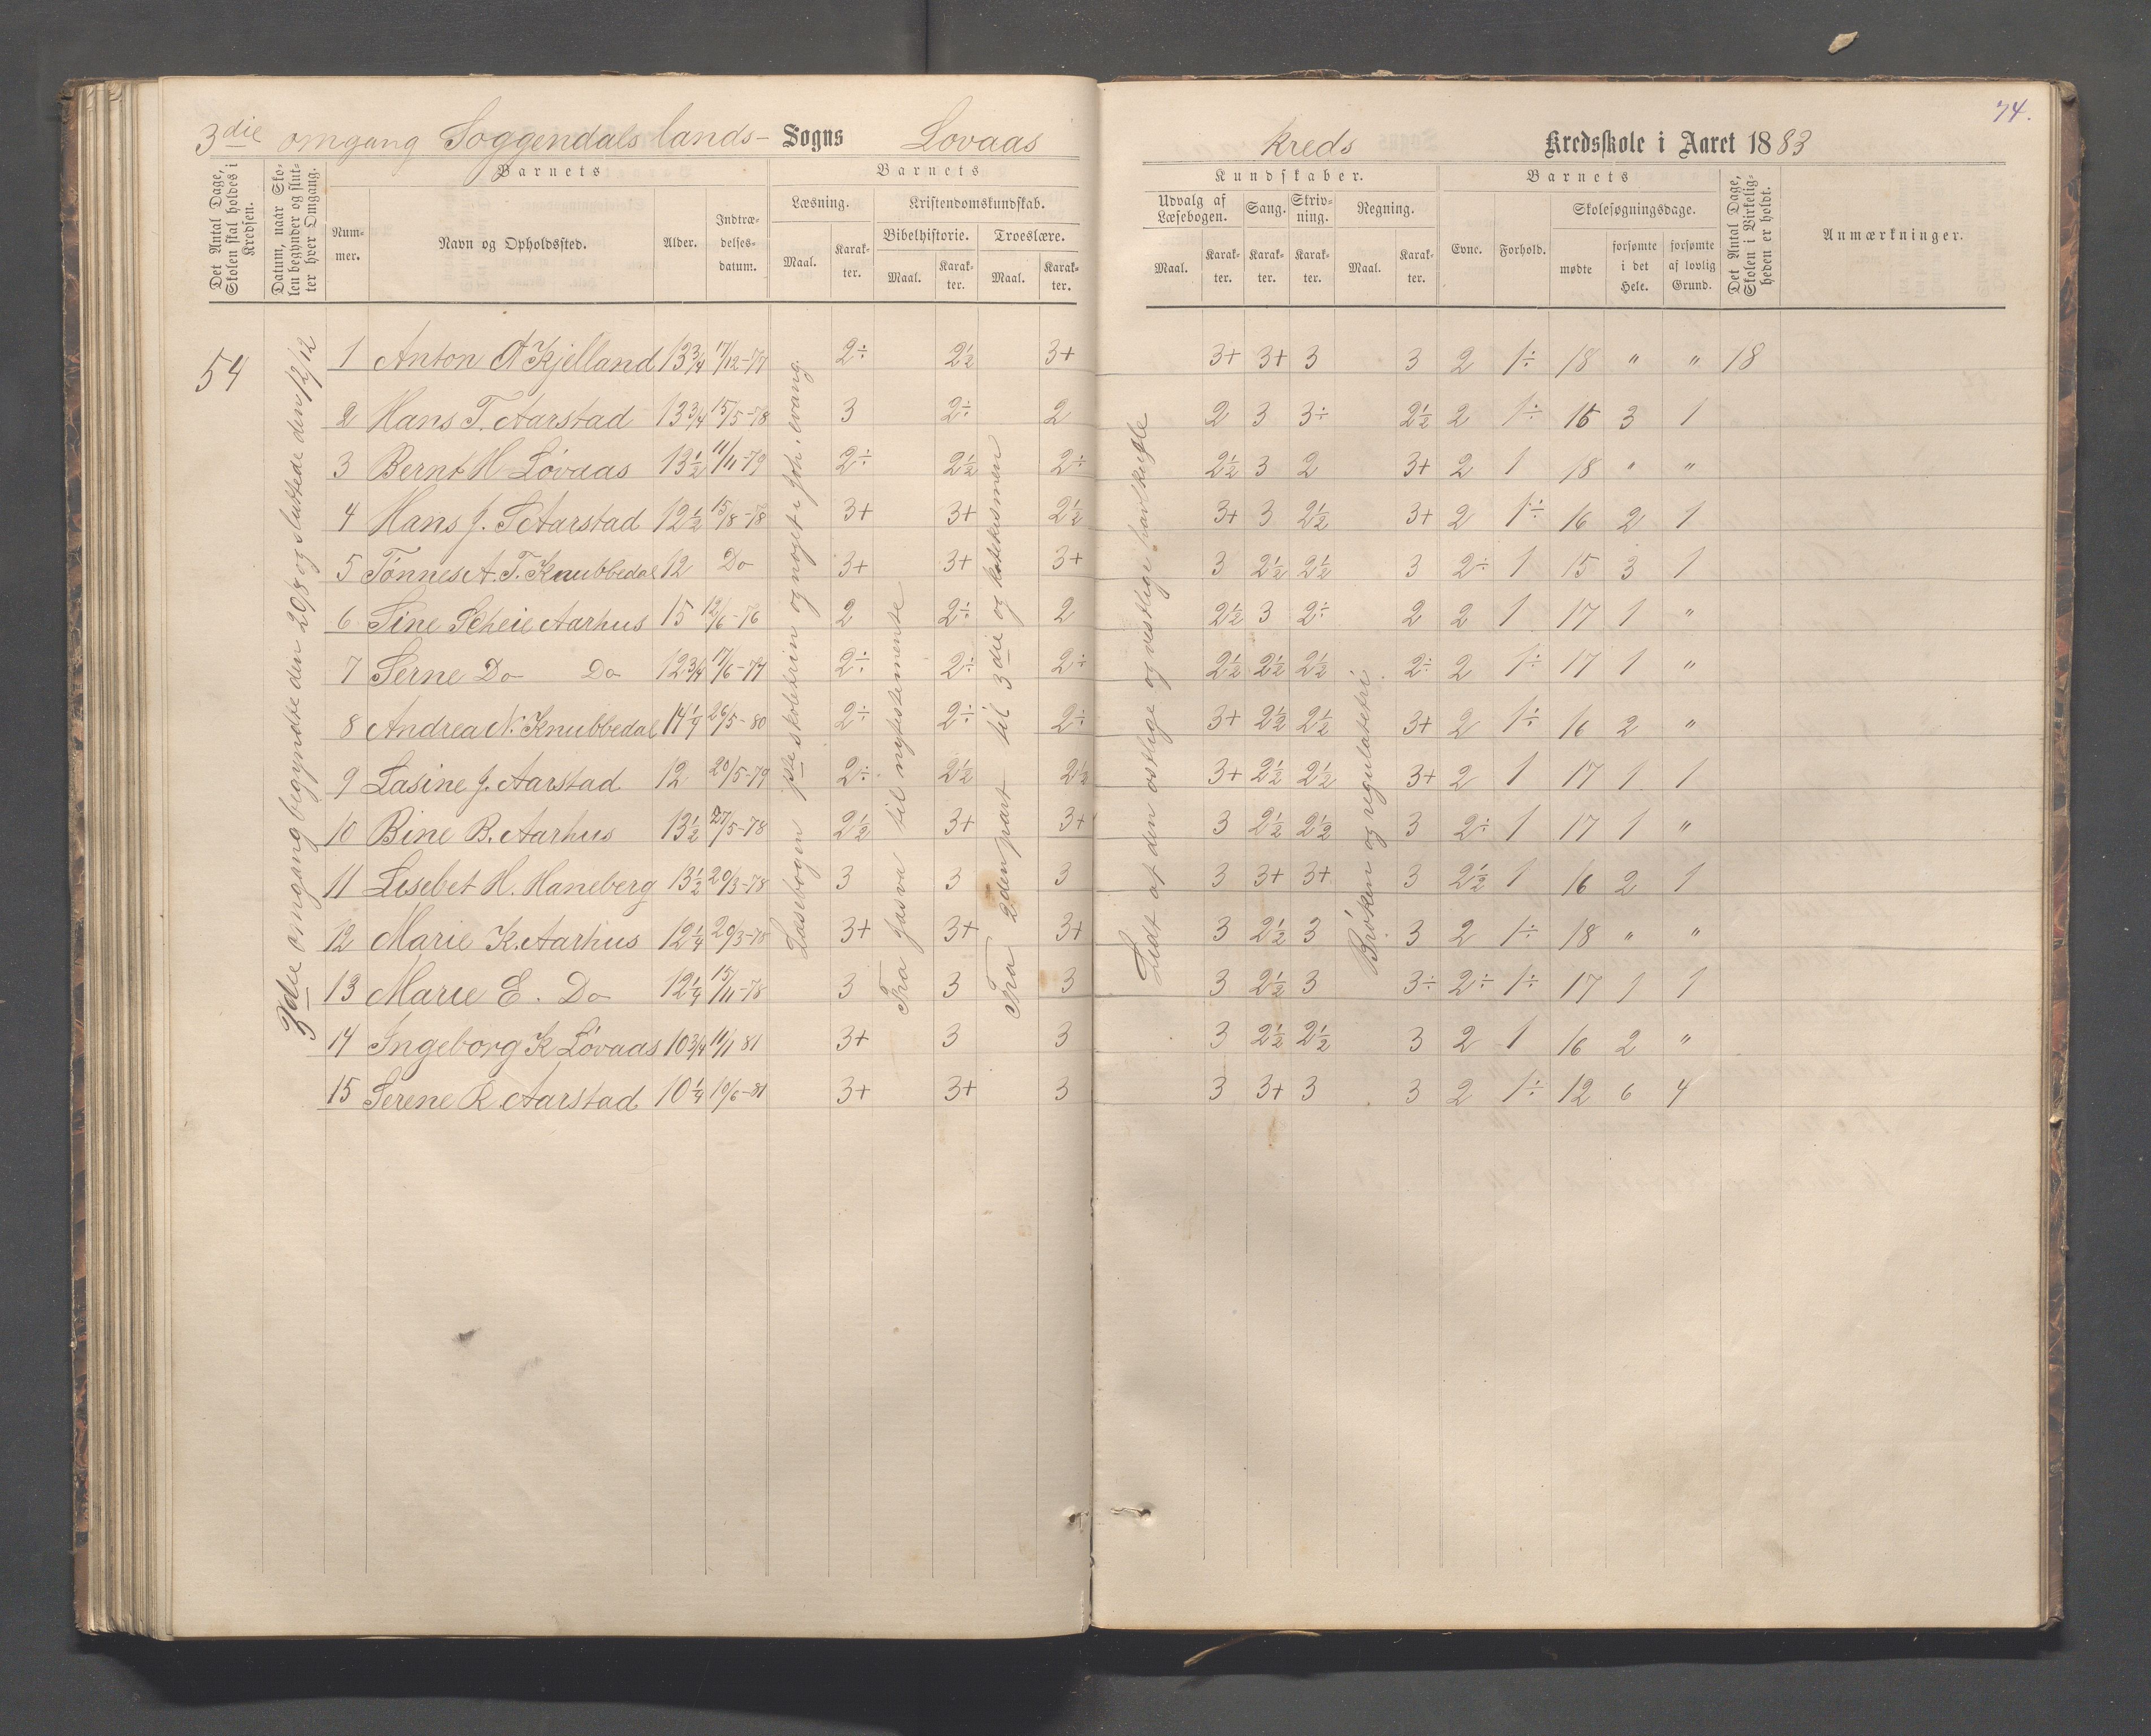 74.
3die omgang Soggendals lands- Sogns Lovaas kreds Kredsskole i Aaret 1883
Det Antal Dage, Skolen skal holdes i Kredsen.
Datum, naar Skolen begynder og slutter hver Omgang.
Barnets
Nummer.
Navn og Opholdssted.
Alder.
Indtrædelsesdatum.
Barnets
Læsning.
Maal.
Karakter.
Kristendomskundskab.
Bibelhistorie.
Maal.
Karakter.
Troeslære.
Maal.
Karakter.
Kundskaber.
Udvalg af Læsebogen.
Maal.
Karakter.
Sang.
Karakter.
Skrivning.
Karakter.
Regning.
Maal.
Karakter.
Barnets
Evne.
Forhold.
Skolesøgningsdage.
mødte
forsømte i det Hele.
forsømte af lovlig Grund.
Det Antal Dage, Skolen i Virkeligheden er holdt.
Anmærkninger.
54
3die omgang begyndte den 20/8 og sluttede den 12/12
Læsebogen 1ste skoletrin og noget i Joh. evang.
Fra Josva til nytestemente
Fra 2den part til 3die og katekismen
Lidt af den østlige og vestlige halvkugle
Brøken og regulatetri
1 Anton A Kjelland 13 3/4 17/12-77 2÷ 2½ 3+ 3+ 3+ 3 3 2 1÷ 18 " " 18
2 Hans T. Aarstad 13 3/4 15/5-78 3 2÷ 2 2 3 3÷ 2½ 2 1÷ 15 3 1
3 Bernt H Lovaas 13½ 11/11-79 2÷ 2½ 2÷ 2½ 3 2 3+ 2 1 18 " "
4 Hans J. S Aarstad 12½ 15/8-78 3+ 3+ 2½ 3+ 3 2½ 3+ 2 1÷ 16 2 1
5 Tønnes A. T. Knubbedal 12 Do 3+ 3+ 3+ 3 2½ 2½ 3 2÷ 1 15 3 1
6 Sine Scheie Aarhus 15 12/6-76 2 2÷ 2 2½ 3 2÷ 2 2 1 17 1 "
7 Serne Do Do 12 3/4 17/6-77 2÷ 2÷ 2÷ 2½ 2½ 2½ 2÷ 2 1÷ 17 1 "
8 Andrea N. Knubbedal 14 1/4 26/5-80 2÷ 2÷ 2÷ 3+ 2½ 2½ 3+ 2 1÷ 16 2 "
9 Lasine J. Aarstad 12 20/5-79 2÷ 2½ 2½ 3+ 2½ 2½ 3+ 2 1 17 1 1
10 Bine B. Aarhus 13½ 27/5-78 2½ 3+ 3+ 3 2½ 2½ 3 2÷ 1 17 1 "
11 Lisebet H. Haneberg 13½ 20/3-78 3 3 3 3 3+ 3+ 3 2½ 1 16 2 1
12 Marie K. Aarhus 12 1/4 20/3-78 3+ 3+ 3+ 3 2½ 3 3 2 1÷ 18 " "
13 Marie E. Do 12 1/4 15/11-78 3 3 3 3 2½ 3 3÷ 2÷ 1÷ 17 1 1
14 Ingeborg K Lovaas 10 3/4 11/1 81 3+ 3 3 3 2½ 2½ 3 2 1 16 2 "
15 Serene R Aarstad 10 1/4 10/6-81 3+ 3+ 3 3 3+ 3 3 2 1÷ 12 6 4